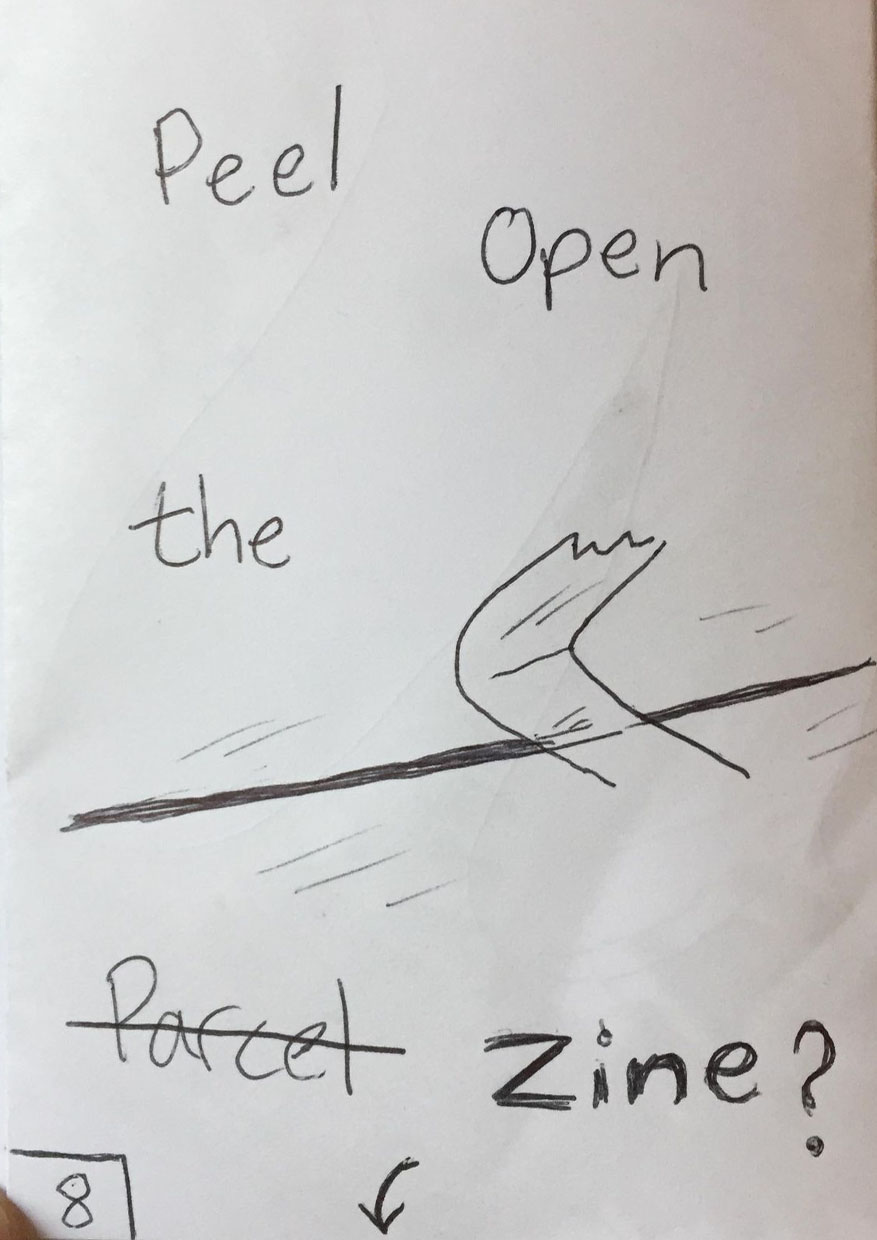 Peel
Open
the
Parcel zine?
8